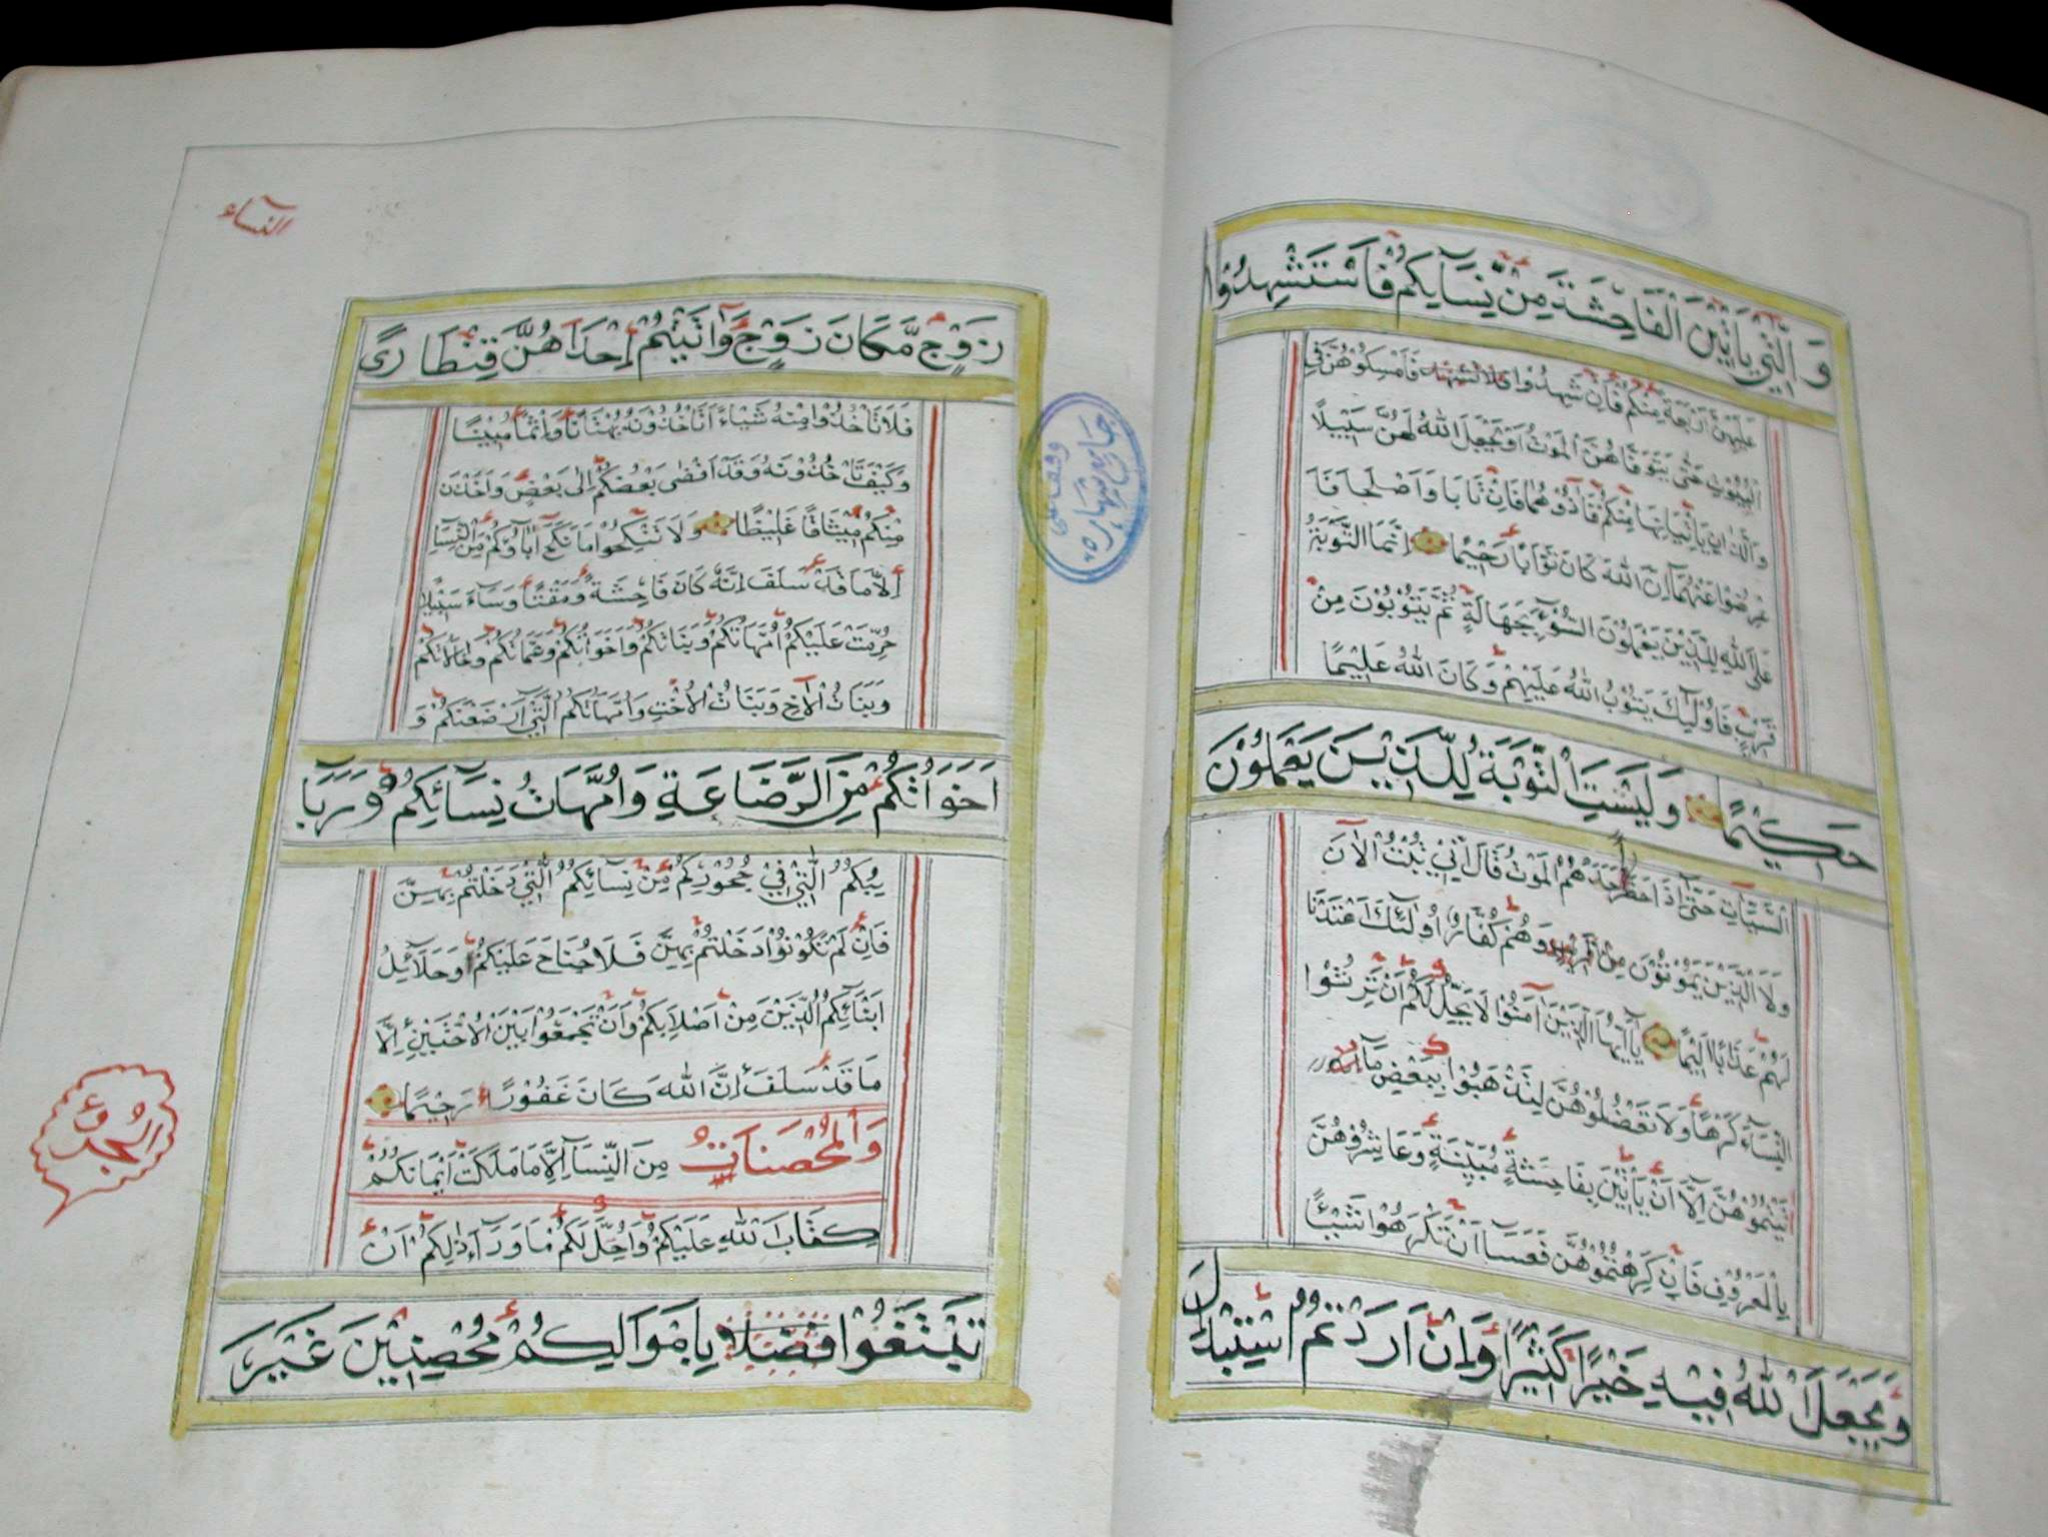 وَالّٰتِي يَأْتِيْنَ الْفَاحِشَةَ مِنْ نِسَآيِكُمْ فَاسْتَشْهِدُوْا
عَلَيْهِنَّ اَرْبَعَةً مِنْكُمْ فَاِنْ شَهِدُوْا فَاَمْسِكُوْهُنَّ فِي
الْبُيُوْتِ حَتّٰى يَتَوَفَّاهُنَّ الْمَوْتُ اَوْ يَجْعَلَ اللهُ لَهُنَّ سَبِيْلًا
وَالَّذَانِ يَأْتِيَانِهَا مِنْكُمْ فَاٰذُوْهُمَا فَاِنْ تَابَا وَاَصْلَحَا فَاَ
عْرِضُوْا عَنْهُمَا اِنَّ اللهَ كَانَ تَوَّابًا رَحِيْمًا اِنَّمَا التَّوْبَةُ
عَلَى اللهِ لِلَّذِيْنَ يَعْمَلُوْنَ السُّوْٓءَ بِجَهَالَةٍ ثُمَّ يَتُوْبُوْنَ مِنْ
قَرِيْبٍ فَاُولٰٓئِكَ يَتُوْبُ اللهُ عَلَيْهِمْ وَكَانَ اللهُ عَلِيْمًا
حَكِيْمًا وَلَيْسَتِ التَّوْبَةُ لِلَّذِيْنَ يَعْمَلُوْنَ
السَّيِّاٰتِ حَتّٰىٓ اِذَا حَضَرَ اَحَدَهُمُ الْمَوْتُ قَالَ اِنِّيْ تُبْتُ الْاٰنَ
وَلَا الَّذِيْنَ يَمُوْتُوْنَ وَهُمْ كُفَّارٌ اُولٰٓئِكَ اَعْتَدْنَا
لَهُمْ عَذَابًا اَلِيْمًا يَآ اَيُّهَا الَّذِيْنَ اٰمَنُوْا لَا يَحِلُّ لَكُمْ اَنْ تَرِثُوْا
النِّسَآءَ كَرْهًا وَلَا تَعْضُلُوْهُنَّ لِتَذْهَبُوْا بِبَعْضِ مَآ
اٰتَيْتُمُوْهُنَّ اِلَّآ اَنْ يَأْتِيْنَ بِفَاحِشَةٍ مُبَيِّنَةٍ وَعَاشِرُوْهُنَّ
بِالْمَعْرُوْفِ فَاِنْ كَرِهْتُمُوْهُنَّ فَعَسَآ اَنْ تَكْرَهُوْا شَيْئًا
وَيَجْعَلَ اللهُ فِيْهِ خَيْرًا كَثِيْرًا وَاِنْ اَرَدْتُمُ اسْتِبْدَالَ
النسآء
زَوْجٍ مَّكَانَ زَوْجٍ وَاٰتَيْتُمْ اِحْدَاهُنَّ قِنْطَارًى
فَلَا تَاْخُذُوْا مِنْهُ شَيْءًا اَتَاْخُذُوْنَهُ بُهْتَانًا وَاِثْمًا مُبِيْنًا
وَكَيْفَ تَاْخُذُوْنَهُ وَقَدْ اَفْضٰى بَعْضُكُمْ اِلٰى بَعْضٍ وَاَخَذْنَ
مِنْكُمْ مِيْثَاقًا غَلِيْظًا وَلَا تَنْكِحُوْا مَا نَكَحَ اٰبَآؤُكُمْ مِنَ النِّسَآءِ
اِلَّا مَا قَدْ سَلَفَ اِنَّهُ كَانَ فَاحِشَةً وَمَقْتًا وَسَآءَ سَبِيْلًا
حُرِّمَتْ عَلَيْكُمْ اُمَّهَاتُكُمْ وَبَنَاتُكُمْ وَاَخَوَاتُكُمْ وَعَمَّاتُكُمْ وَخَالَاتُكُمْ
وَبَنَاتُ الْاَخِ وَبَنَاتُ الْاُخْتِ وَاُمَّهَاتُكُمُ الّٰتِيْ اَرْضَعْنَكُمْ وَ
اَخَوَاتُكُمْ مِنَ الرَّضَاعَةِ وَاُمَّهَاتُ نِسَآئِكُمْ وَرَبَا
ئِبُكُمُ الّٰتِيْ فِيْ حُجُوْرِكُمْ مِنْ نِسَآئِكُمُ الّٰتِيْ دَخَلْتُمْ بِهِنَّ
فَاِنْ لَمْ تَكُوْنُوْا دَخَلْتُمْ بِهِنَّ فَلَا جُنَاحَ عَلَيْكُمْ وَحَلَآئِلُ
اَبْنَآئِكُمُ الَّذِيْنَ مِنْ اَصْلَابِكُمْ وَاَنْ تَجْمَعُوْا بَيْنَ الْاُخْتَيْنِ اِلَّا
مَا قَدْ سَلَفَ اِنَّ اللهَ كَانَ غَفُوْرًا رَحِيْمًا
وَالْمُحْصَنَاتُ مِنَ النِّسَآ اِلَّا مَا مَلَكَتْ اَيْمَانُكُمْ
كِتَابَ اللهِ عَلَيْكُمْ وَاُحِلَّ لَكُمْ مَا وَرَآءَ ذٰلِكُمْ اَنْ
تَبْتَغُوْا فَضْلًا بِاَمْوَالِكُمْ مُحْصِنِيْنَ غَيْرَ
الجزؤ